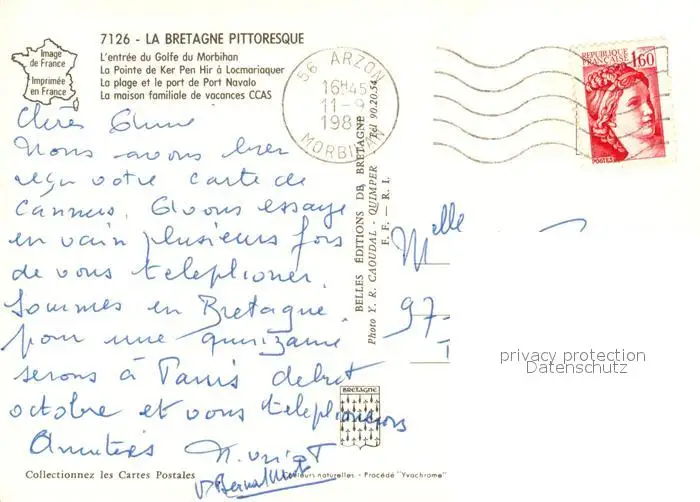 7126 - LA BRETAGNE PITTORESQUE
L'entrée du Golfe du Morbihan
La Pointe de Ker Pen Hir à Locmariaquer
La plage et le port de Port Navalo
La maison familiale de vacances CCAS
Image
de France
Imprimée
en France
56 ARZON
16H45
11-9
198
MORBIHAN
REPUBLIQUE
FRANÇAISE
1,60
POSTES
Chères
Nous avons bien
reçu votre carte de
Cannes. Avons essayé
en vain plusieurs fois
de vous telephoner.
Sommes en Bretagne
pour une quinzaine
serons à Paris debut
octobre et vous telephonerons
Amitiés
BELLES ÉDITIONS DE BRETAGNE
Photo Y. R. CAOUDAL - QUIMPER Tél 90.20.54
F. F. — R. I.
Melle
97-
privacy protection
Datenschutz
BRETAGNE
Collectionnez les Cartes Postales
Couleurs naturelles - Procédé "Yvachrome"